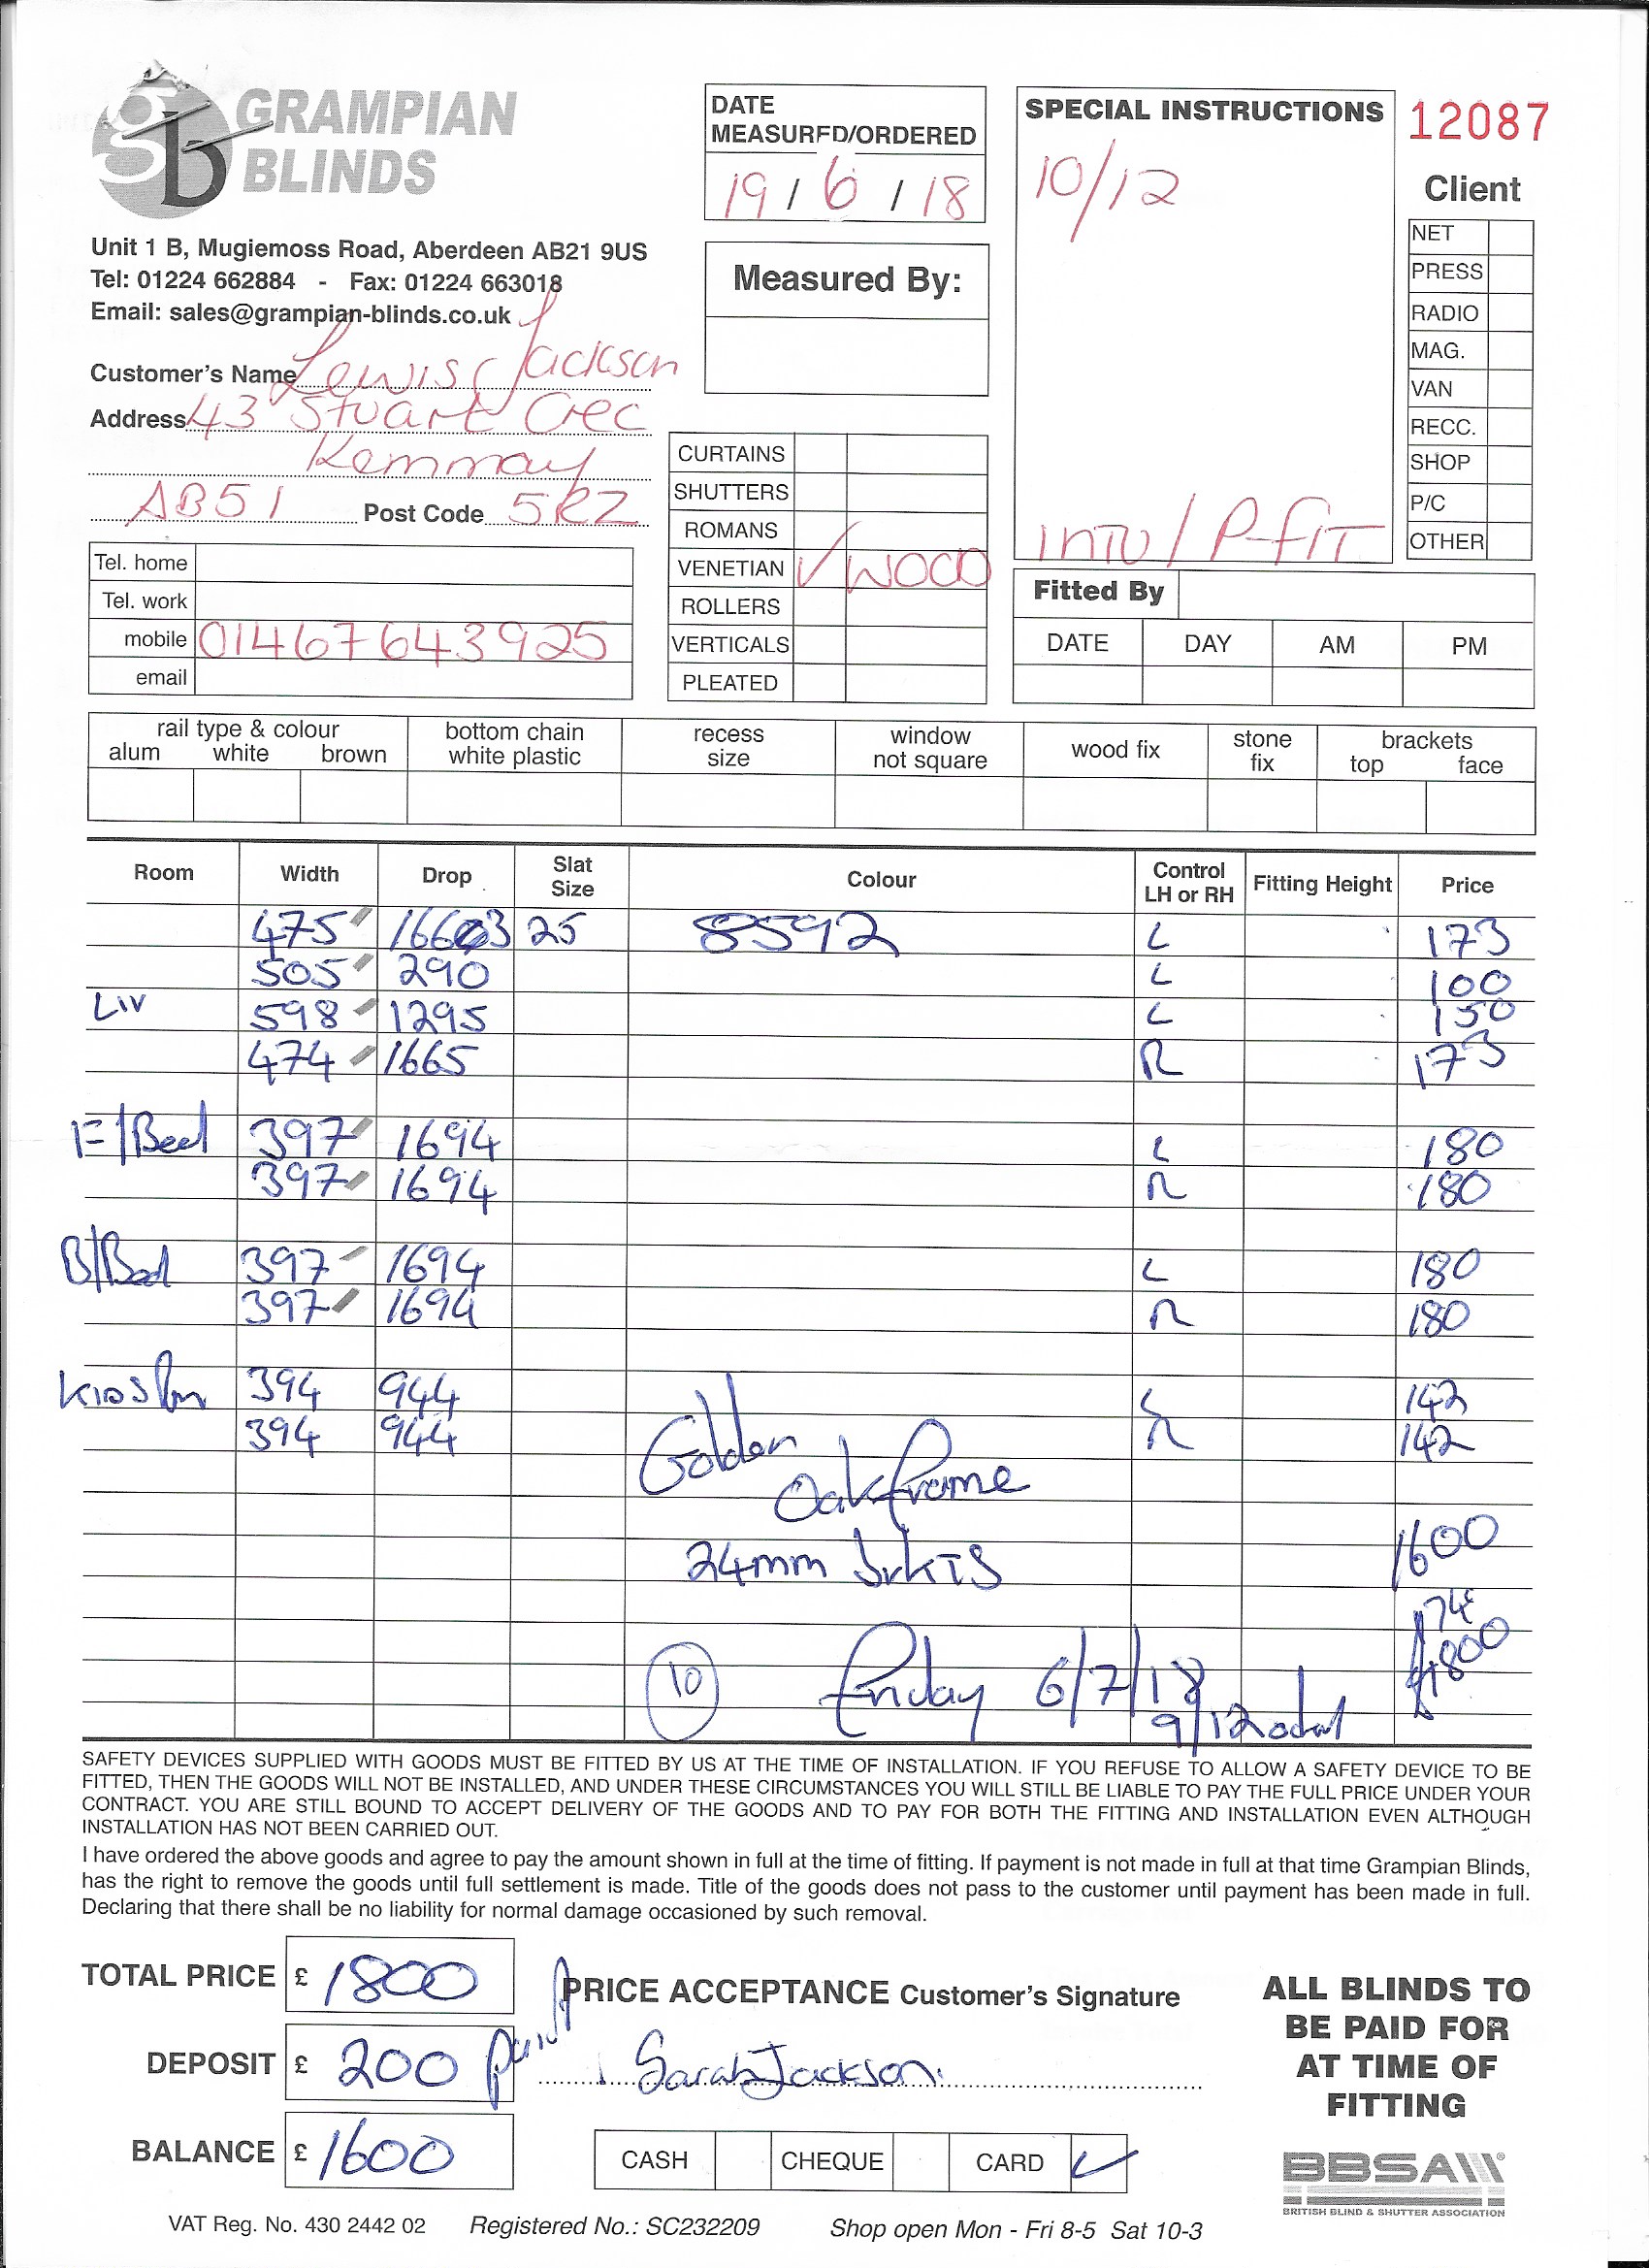 GRAMPIAN
BLINDS
Unit 1 B, Mugiemoss Road, Aberdeen AB21 9US
Tel: 01224 662884 - Fax: 01224 663018
Email: sales@grampian-blinds.co.uk
DATE
MEASURED/ORDERED
19 / 6 / 18
Measured By:
SPECIAL INSTRUCTIONS
10/12
INTU / P-FIT
12087
Client
NET
PRESS
RADIO
MAG.
VAN
RECC.
SHOP
P/C
OTHER
Customer's Name Lewis Jackson
Address 43 Stuart Crec
Kemmay
AB51 Post Code 5RZ
Tel. home
Tel. work
mobile 01467643925
email
CURTAINS
SHUTTERS
ROMANS
VENETIAN ✓ WOOD
ROLLERS
VERTICALS
PLEATED
Fitted By
DATE DAY AM PM
rail type & colour
alum white brown
bottom chain
white plastic
recess
size
window
not square
wood fix
stone
fix
brackets
top face
Room Width Drop Slat Size Colour Control LH or RH Fitting Height Price
475 1663 25 8592 L 173
505 290 L 100
Liv 598 1295 L 150
474 1665 R 173
F/Bed 397 1694 L 180
397 1694 R 180
B/Bed 397 1694 L 180
397 1694 R 180
Kids Rm 394 944 L 142
394 944 R 142
Golden
Oak frame
1600
24mm brkts
174
£1800
10 Friday 6/7/18
9/12
SAFETY DEVICES SUPPLIED WITH GOODS MUST BE FITTED BY US AT THE TIME OF INSTALLATION. IF YOU REFUSE TO ALLOW A SAFETY DEVICE TO BE
FITTED, THEN THE GOODS WILL NOT BE INSTALLED, AND UNDER THESE CIRCUMSTANCES YOU WILL STILL BE LIABLE TO PAY THE FULL PRICE UNDER YOUR
CONTRACT. YOU ARE STILL BOUND TO ACCEPT DELIVERY OF THE GOODS AND TO PAY FOR BOTH THE FITTING AND INSTALLATION EVEN ALTHOUGH
INSTALLATION HAS NOT BEEN CARRIED OUT.
I have ordered the above goods and agree to pay the amount shown in full at the time of fitting. If payment is not made in full at that time Grampian Blinds,
has the right to remove the goods until full settlement is made. Title of the goods does not pass to the customer until payment has been made in full.
Declaring that there shall be no liability for normal damage occasioned by such removal.
TOTAL PRICE £ 1800
DEPOSIT £ 200 paid
BALANCE £ 1600
PRICE ACCEPTANCE Customer's Signature
Sarah Jackson
CASH CHEQUE CARD ✓
ALL BLINDS TO
BE PAID FOR
AT TIME OF
FITTING
BBSA
BRITISH BLIND & SHUTTER ASSOCIATION
VAT Reg. No. 430 2442 02 Registered No.: SC232209 Shop open Mon - Fri 8-5 Sat 10-3